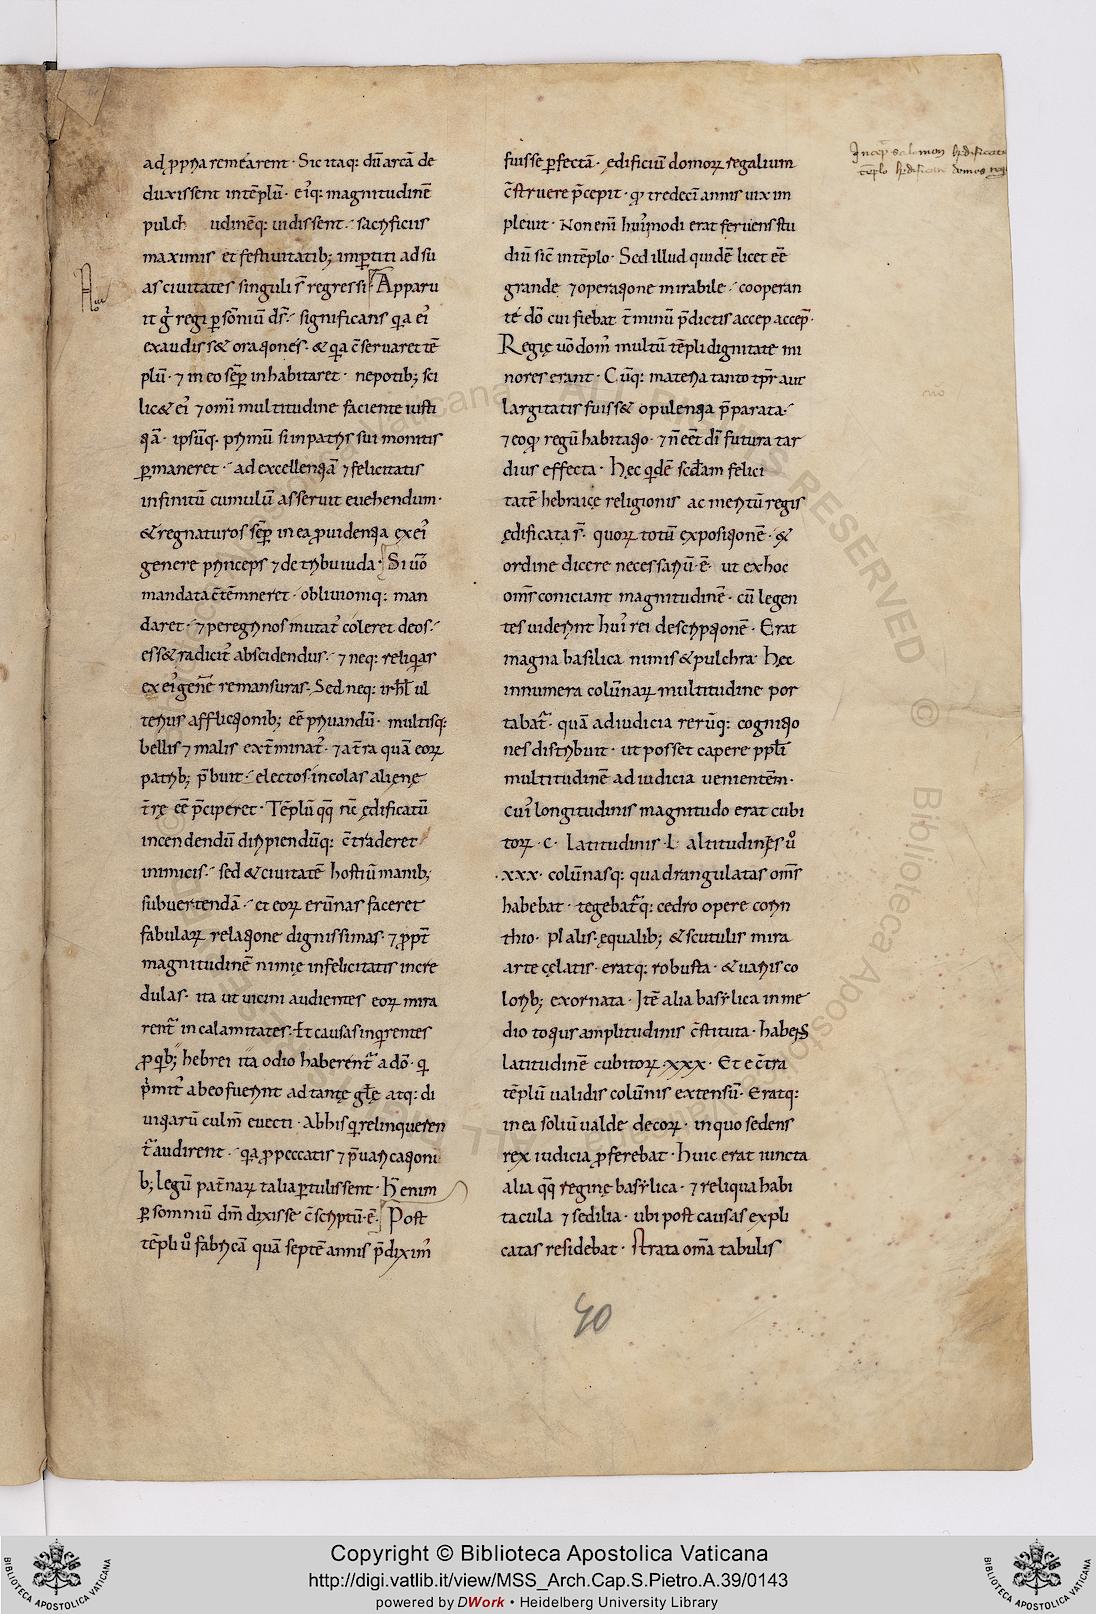 ad ꝓpria remearent · Sic itaq: dū arcā de
duxissent in tēplū · eiꝰq: magnitudinē
pulch udinēq: uidissent · sacrificiis
maximis et festiuitatib; imptiti ad su
as ciuitates singuli s̄ regressi Apparu
it g̊ regi ꝑ sōniū ds̄ · significans qa eiꝰ
exaudiss& orationes · & qa c̄seruaret tē
plū · ⁊ in eo sēp inhabitaret · nepotib; sci
lic& eiꝰ ⁊ omī multitudine faciente iusti
tiā · ipsūq. primū si in patris sui monitis
ꝑmaneret · ad excellentiā ⁊ felicitatis
infinitū cumulū asseruit euehendum ·
& regnaturos sēp in ea ꝓuidentia ex eiꝰ
genere princeps ⁊ de tribu iuda · Si uō
mandata c̄tēmneret · obliuioniq: man
daret · ⁊ peregrinos mutatꝰ coleret deos ·
ess& radicitꝰ abscidendus · ⁊ neq: reliqas
ex eiꝰ genē remansuras · Sed neq: isrl̄ ul
terius afflictionib; eē priuandū · multisq:
bellis ⁊ malis ext̄minatꝰ · ⁊ a t̄ra quā eoꝝ
patrib; p̄buit · electos incolas alienę
t̄rę eē p̄ciperet · Tēplū qq nc̄ ędificatū
incendendū diripiendūq: c̄traderet
inimicis · sed & ciuitatē hostiū manib;
subuertendā · et eoꝝ erūnas faceret
fabulaꝝ relatione dignissimas · ⁊ ꝓpt̄
magnitudinē nimię infelicitatis incre
dulas · ita ut uicini audientes eoꝝ mira
rent̄ in calamitates · Et causas inqrentes
ꝓ qb; hebrei ita odio haberent̄ a dō · q
p̊mitꝰ ab eo fuerint ad tantę gl̄ę atq: di
uitiarū culm̄ euecti · Ab his q relinqueren
t̄ audirent · qa ꝓ peccatis ⁊ p̄uaricationi
b; legū pat̄naꝝ talia ꝑtulissent · H̄ enim
ꝑ somniū dm̄ dixisse c̄scriptū · ē · Post
tēpli ů fabricā quā septē annis p̄diximꝰ
fuisse ꝑfectā · ędificiū domoꝝ regalium
c̄struere p̄cepit · qꝰ tredecī annis uix im
pleuit · Non enī huiꝰmodi erat feruens stu
diū sic̄ in tēplo · Sed illud quidē licet eē
grande ⁊ operatione mirabile · cooperan
te dō cui fiebat t̄minū p̄dictis accep accep̄ ·
Regię uō domꝰ multū tēpli dignitate mi
nores erant · Cūq: materia tanto tp̄r aut
largitatis fuiss& opulentia p̄parata ·
⁊ eo qꝰ regū habitatio · ⁊ ñ eēt dī futura tar
dius effecta · Hęc qdē scd̄am felici
tatē hebraicę religionis ac meritū regis
ędificata s̄ · quoꝝ totū expositionē · &
ordine dicere necessariū · ē · ut ex hoc
omīs coniciant magnitudinē · cū legen
tes uiderint huiꝰ rei descriptionē · Erat
magna basilica nimis & pulchra Hęc
innumera colūnaꝝ multitudine por
tabat̄ · quā ad iudicia rerūq: cognitio
nes distribuit · ut posset capere ppl̄i
multitudinē ad iudicia uenientēm ·
cuiꝰ longitudinis magnitudo erat cubi
toꝝ · C · Latitudinis · L · altitudines ů
· xxx · colūnasq: quadrangulatas omīs
habebat · tegebat̄q: cedro opere corin
thio · pl alis ęqualib; & scutulis mira
arte cęlatis · eratq: robusta · & uariis co
lorib; exornata · Itē alia basẏlica in me
dio totius amplitudinis c̄stituta · habens
latitudinē cubitoꝝ · xxx · Et e c̄tra
tēplū ualidis colūnis extensū · Eratq:
in ea soliū ualde decoꝝ · in quo sedens
rex iudicia ꝓferebat · huic erat iuncta
alia qq reginę basẏlica · ⁊ reliqua habi
tacula ⁊ sedilia · ubi post causas expli
catas residebat · strata om̄a tabulis
Incep̄ salamon hedificat
tēplo hedificare domos reg
40
Copyright © Biblioteca Apostolica Vaticana
http://digi.vatlib.it/view/MSS_Arch.Cap.S.Pietro.A.39/0143
powered by DWork • Heidelberg University Library